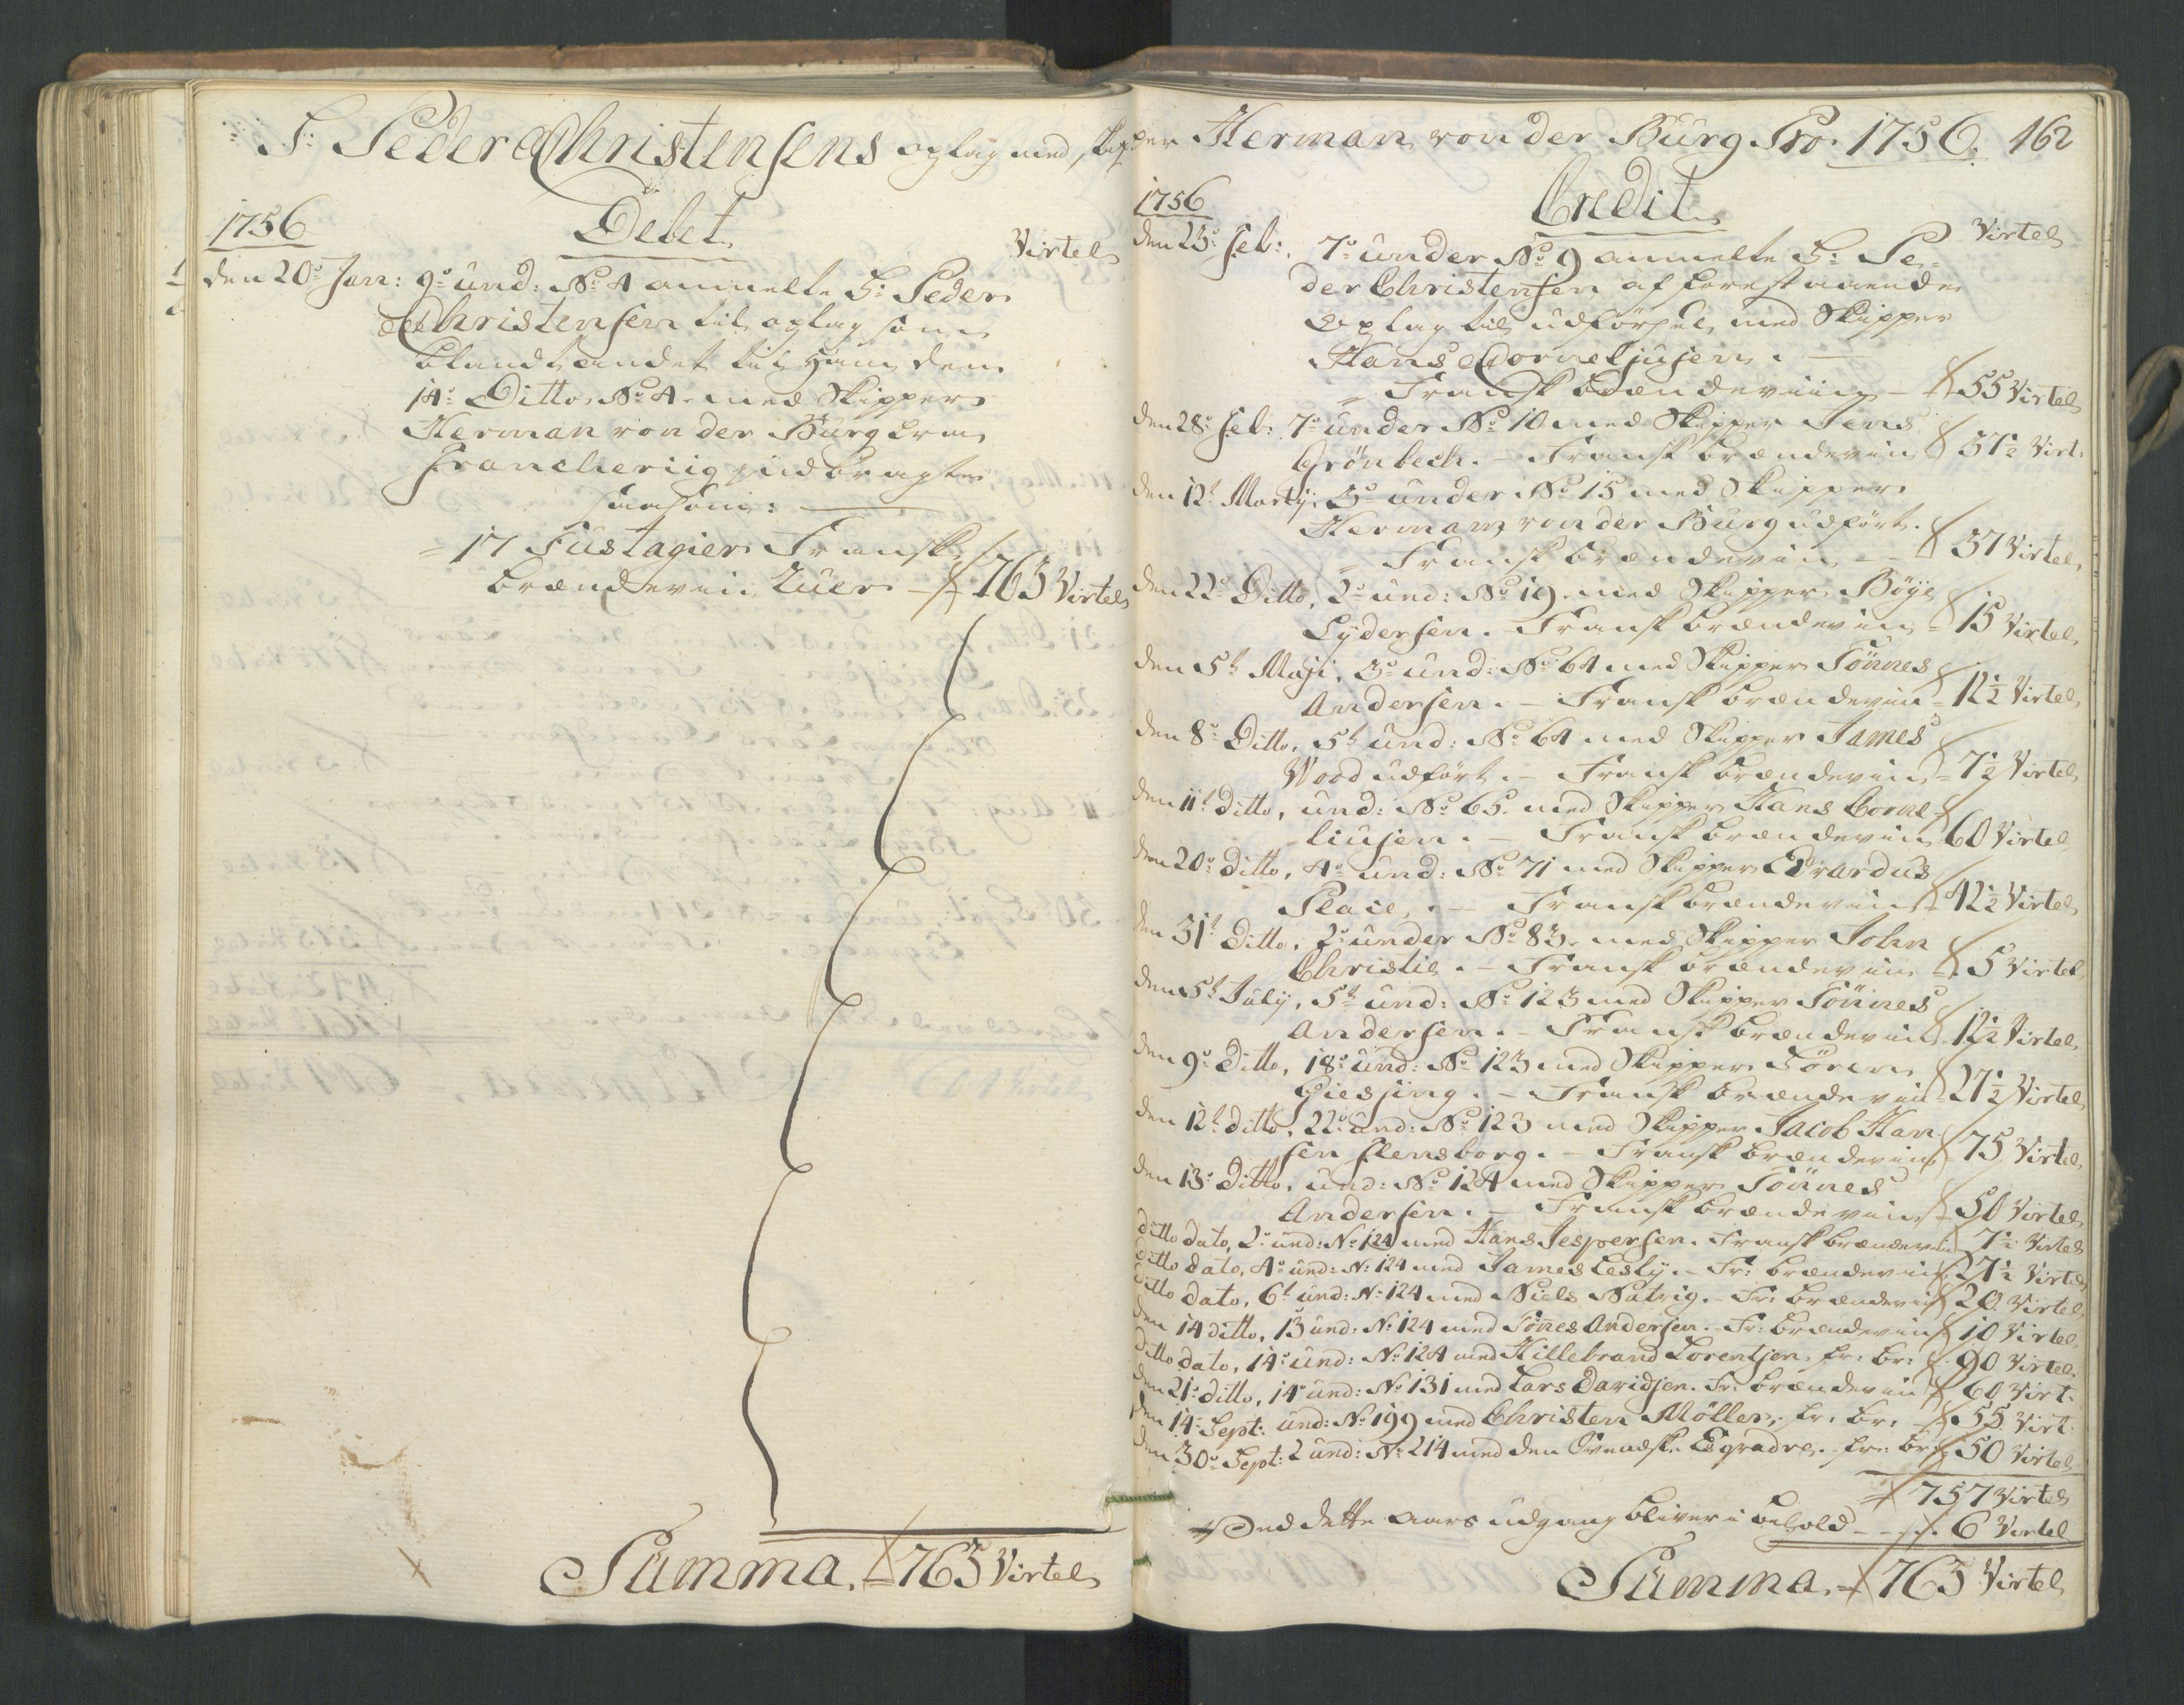 S: Peder Christensens oplag med skipper Herman von der Burg Pro 1756. 462
1756 Debet Virtel
den 20de Jan: 9de und: No 4 anmelte S: Peder
Christensen til oplag som
blandt andet til ham den
14de Ditto, No 4 med Skipper
Herman von der Burg fra
indbragte
saasom:
17 Fustagier Fransk
brændeviin - 763 Virtel
Summa. 763 Virtel
1756 Credit Virtel
den 23de Feb: 7de under No 9 anmelte S: Pe-
der Christensen af forestaaende
Oplag til udførsel med Skipper
Hans Corneljusen.
Fransk brændeviin - 55 Virtel
den 28de Feb: 7de under No 10 med Skipper Jens
Grönbech. - Fransk brændeviin 37½ Virt:
den 12te Martij, 3de under No 15 med Skipper
Herman von der Burg udført.
Fransk brændeviin - 37 Virtel
den 22de Ditto, 2de und: No 19 med Skipper Böye
Lydersen. - Fransk brændeviin 15 Virtel
den 5te Maji, 3de und: No 64 med Skipper Tönnes
Andersen. - Fransk brændeviin 12½ Virtel
den 8de Ditto, 5te und: No 64 med Skipper James
Wood udført. - Fransk brændeviin 7½ Virtel
den 11te Ditto, und: No 65 med Skipper Hans Corne-
liusen. - Fransk brændeviin 60 Virtel
den 20de Ditto, 4de und: No 71 med Skipper Evardus
Place. - Fransk brændeviin 42½ Virtel
den 31te Ditto, 2de under No 83 med Skipper John
Christie. - Fransk brændeviin 5 Virtel
den 5te Julij, 5te und: No 123 med Skipper Tönnes
Andersen. - Fransk brændeviin 12½ Virtel
den 9de Ditto, 18de und: No 123 med Skipper Sören
Giesjing. - Fransk brændeviin 27½ Virtel
den 12te Ditto, 22de und: No 123 med Skipper Jacob Han
sen Flensborg. - Fransk brændeviin 75 Virtel
den 13de Ditto, und: No 124 med Skipper Tönnes
Andersen. - Fransk brændeviin 50 Virtel
ditto dato, 2de und: No 124 med Hans Jespersen. Fransk brændeviin 7½ Virtel
ditto dato, 4de und: No 124 med James Lesly. - Fr: brændeviin 27½ Virtel
ditto dato, 6te und: No 124 med Niels Natvig. - Fr: brændeviin 20 Virtel
den 14 ditto, 13 und: No 124 med Tönes Andersen. - Fr: brændeviin 10 Virtel
ditto dato, 14de und: No 124 med Hillebrand Lorentjen. fr: br: 90 Virtel
den 21de ditto, 14de und: No 131 med Lars Davidjen. Fr: brændeviin 60 Virt:
den 14de Sept: und: No 199 med Christen Möller, fr: br: - 55 Virt:
den 30de Sept: 2 und: No 214 med den Svendske Esqradre. - fr: br: 50 Virtel
757 Virtel
Ved dette aars udgang bliver i behold - - 6 Virtel
Summa. 763 Virtel